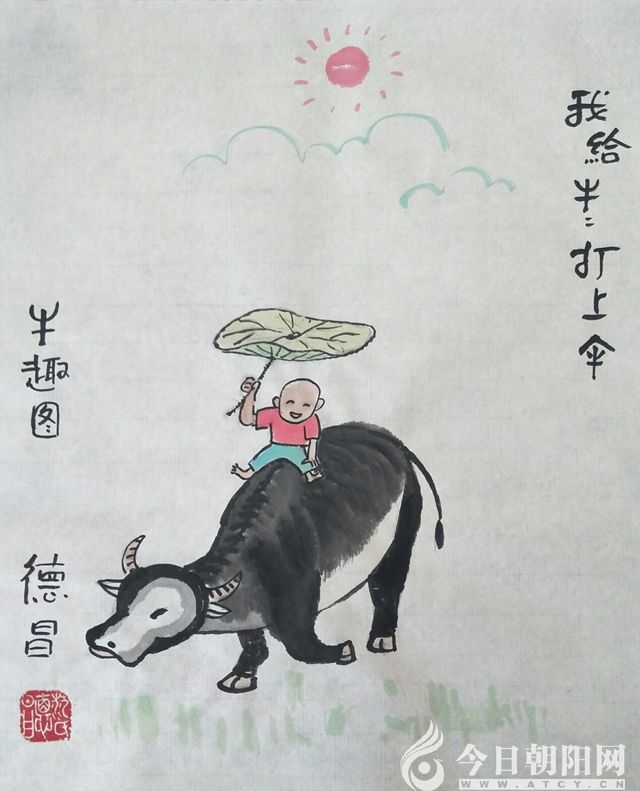 我給牛々打上伞
牛趣图
德昌
今日朝阳网
WWW.ATCY.CN